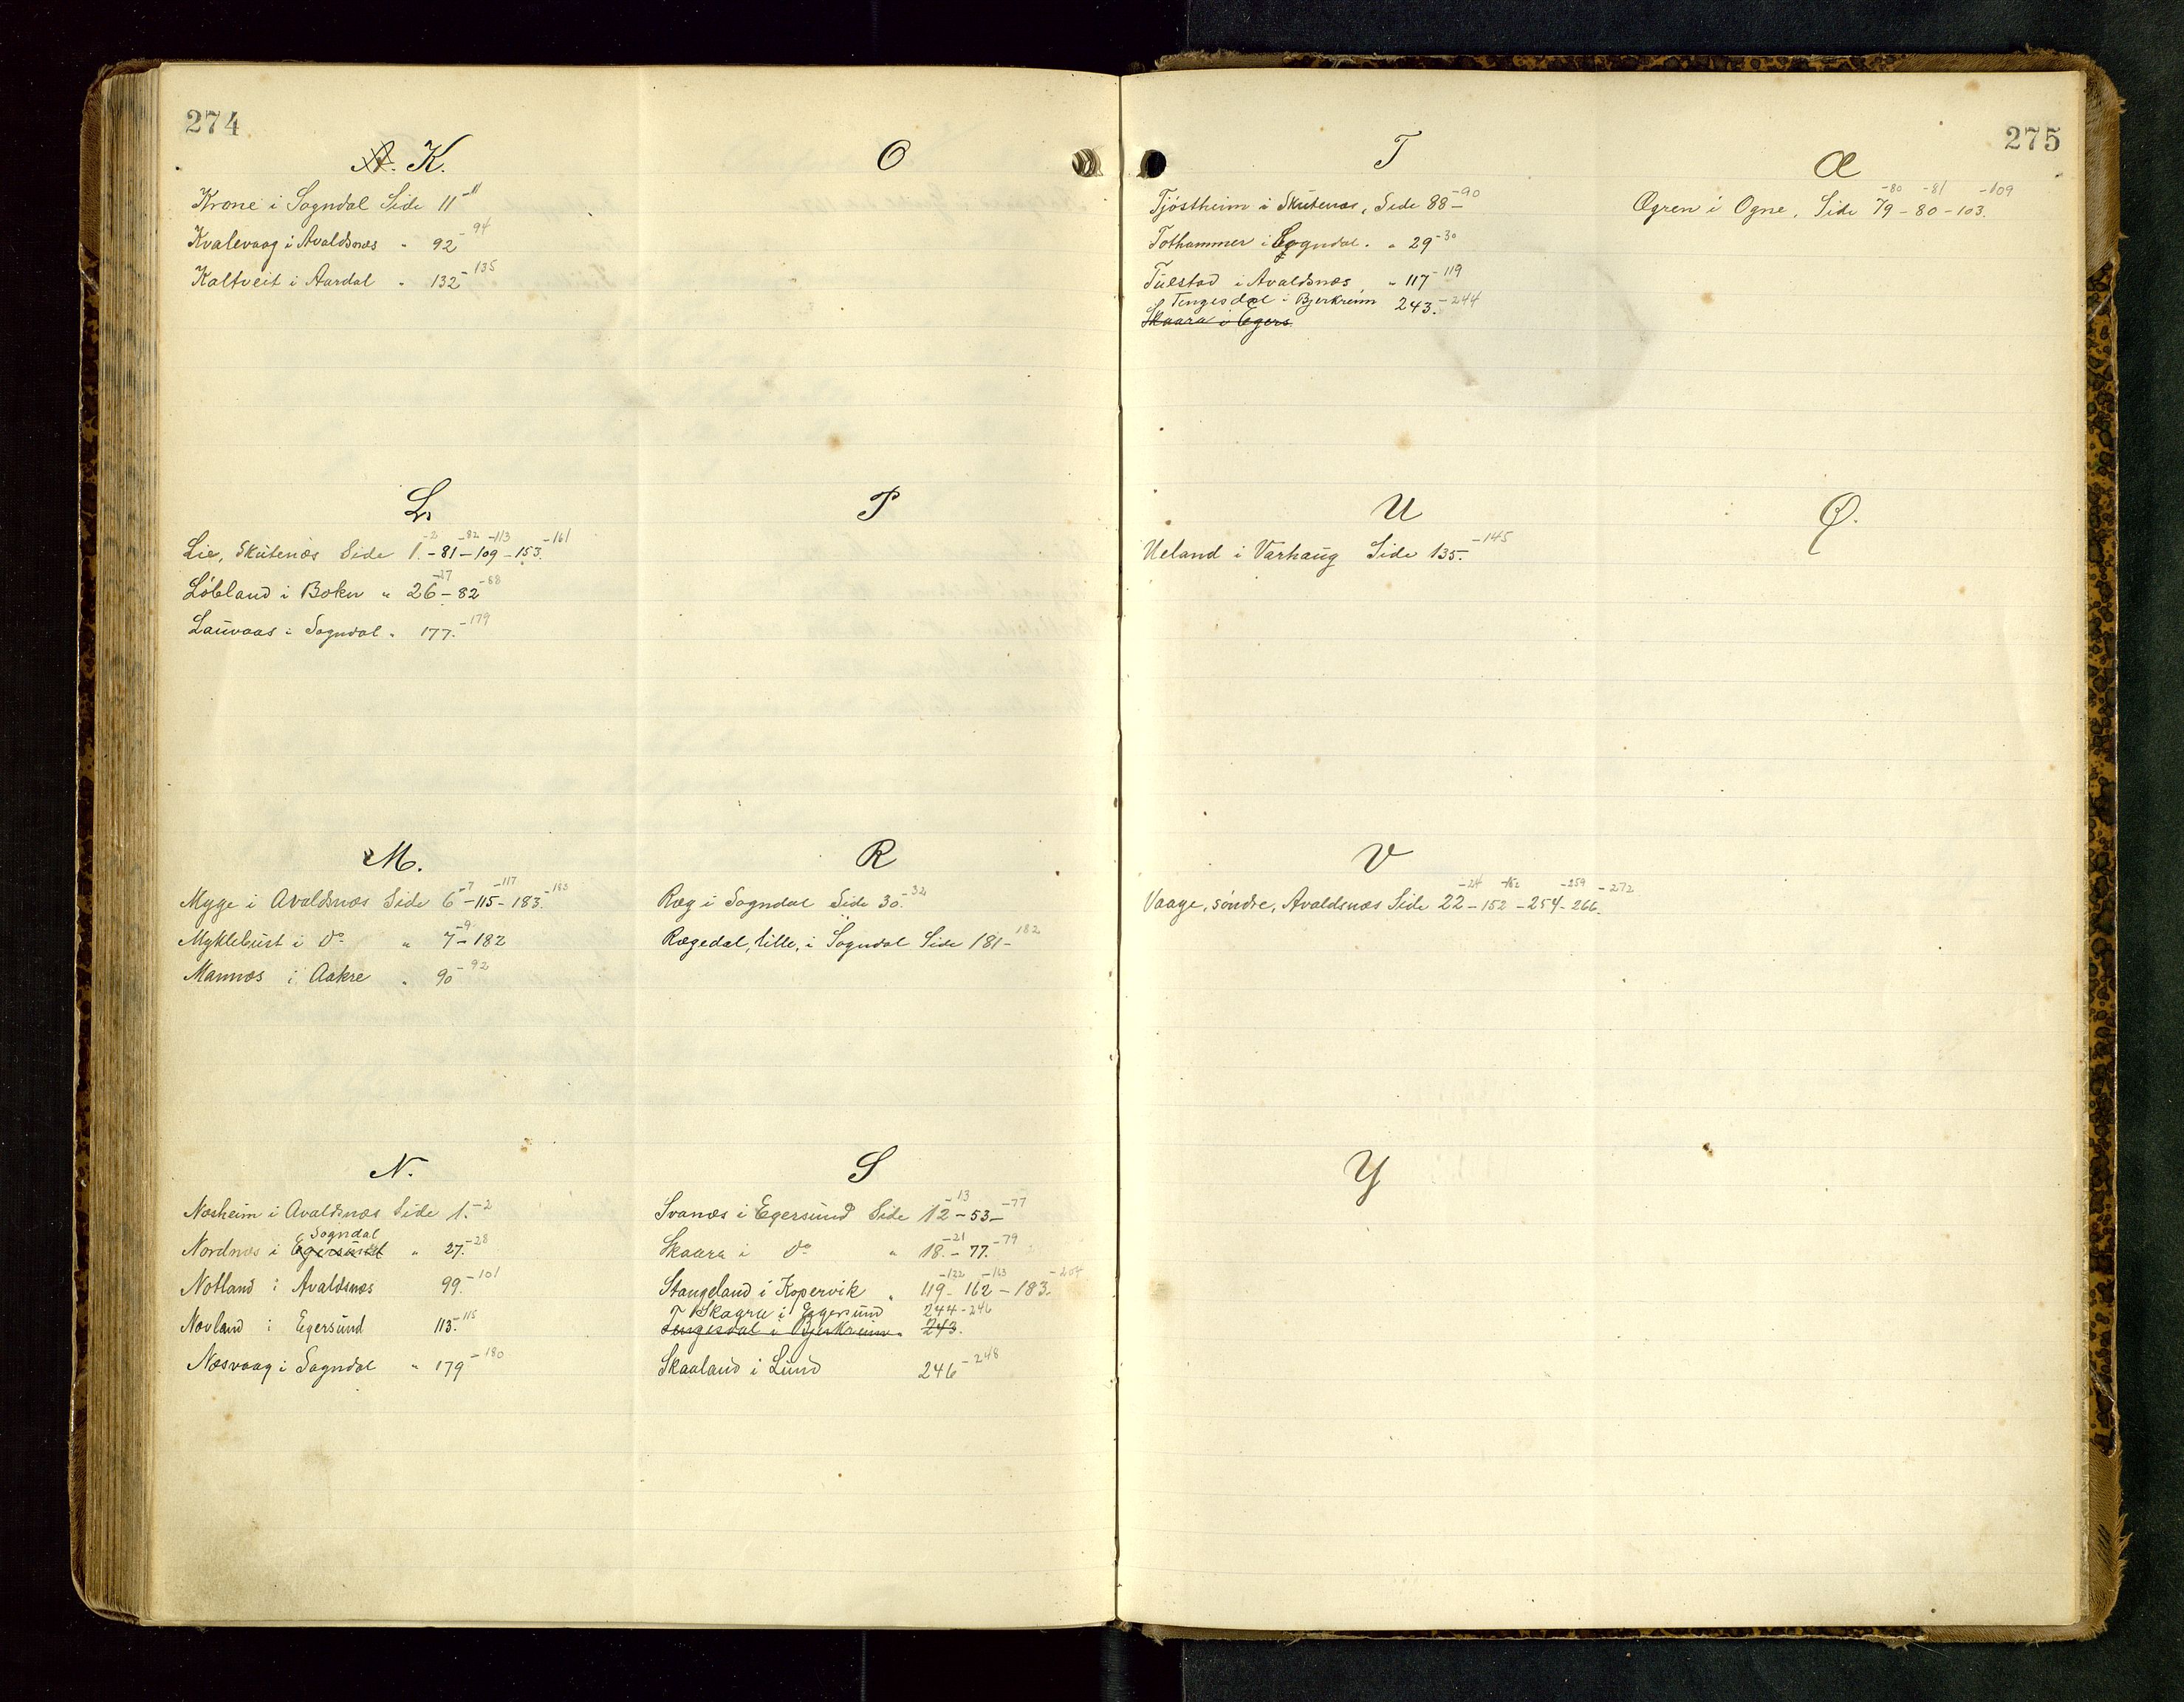 274
K.
Krone i Sogndal Side 11 -11
Kvalevaag i Avaldsnæs " 92 -94
Kaltveit i Aardal " 132 -135
L.
Lie, Skutenæs Side 1. -2 -81 -82 -109 -113 -153. -161
Løbland i Bokn " 26 -27 -82 -88
Lauvaas i Sogndal " 177. -179
M.
Myge i Avaldsnæs Side 6 -7 -115 -117 -183. -183
Myklebust i Do " 7 -9 -182
Mannæs i Aakre " 90 -92
N.
Næsheim i Avaldsnæs Side 1. -2
Sogndal
Nordnæs i Egersund " 27. -28
Notland i Avaldsnæs 99. -101
Novland i Egersund 113. -115
Næsvaag i Sogndal " 179 -180
O
P
R
Ræg i Sogndal Side 30. -32
Rægedal, lille, i Sogndal Side 181 -182
S
Svanæs i Egersund Side 12 -13 -53 -77
Skaara i Do " 18. -21 -77. -79
Stangeland i Kopervik " 119 -122 -162 -163 -183. -204
Skaara i Egersund 244 -246
Tengesdal i Bjerkreim " 243.
Skaaland i Lund 246 -248
275
T
Tjøstheim i Skutenæs, Side 88 -90
Tothammer i Sogndal. " 29 -30
Tuestad i Avaldsnæs, " 117 -119
Tengesdal i Bjerkreim 243. -244
Skaara i Egers
U
Ueland i Varhaug Side 135. -145
V
Vaage, søndre, Avaldsnæs Side 22 -24 -152 -152 -254 -259 -266. -272
Y
Æ
Ægren i Ogne, Side 79 -80 -80 -81 -103. -109
Ø.